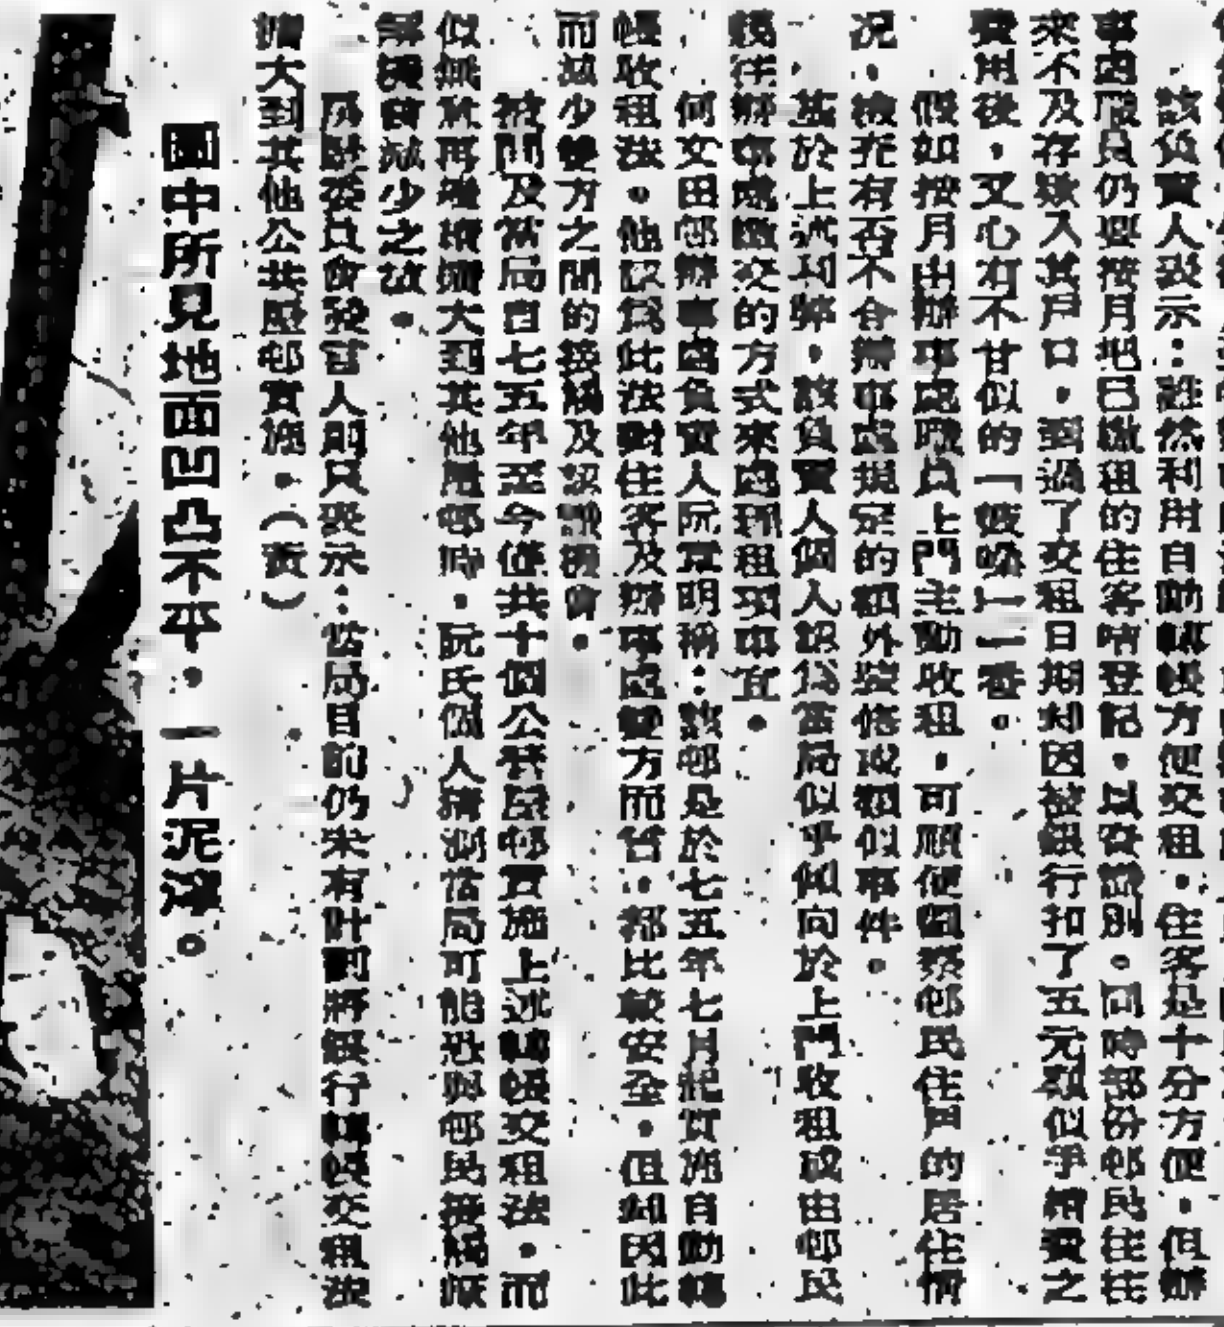 該負責人表示：雖然利用自動轉帳方便交租，住客是十分方便，但辦
事處職員仍要按月地已繳租的住客咭登記，以安識別。同時部份邨民往往
來不及存款入其戶口，到過了交租日期却因被銀行扣了五元類似乎續費之
費用後，又心有不甘似的「嘈吵」一番。
假如按月由辦事處職員上門主動收租，可順便視察邨民住戶的居住情
况，檢查有否不合辦事處規定的額外裝修或類似事件。
基於上述利弊，該負責人個人認為當局似乎傾向於上門收租或由邨民
親往辦事處繳交的方式來處理租項事宜。
何文田邨辦事處負責人阮寶明稱：該邨是於七五年七月起實施自動轉
帳收租法。他認為此法對住客及辦事處雙方而言，都比較安全，但却因此
而減少雙方之間的接觸及認識機會。
被問及當局自七五年至今僅共十個公共屋邨實施上述轉帳交租法，而
似無意再繼續擴大到其他屋邨時，阮氏個人猜測當局可能恐與邨民接觸
機會減少之故。
房屋委員會發言人則只表示：當局目前仍未有計劃將銀行轉帳交租法
擴大到其他公共屋邨實施。（寅）
圖中所見地面凹凸不平，一片泥濘。